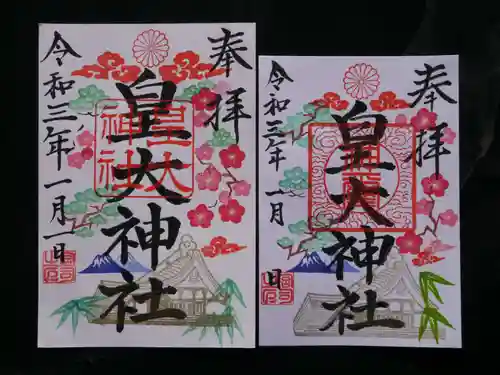 奉拝
皇大神社
令和三年一月一日
皇大神社
奉拝
皇大神社
令和三年一月 日